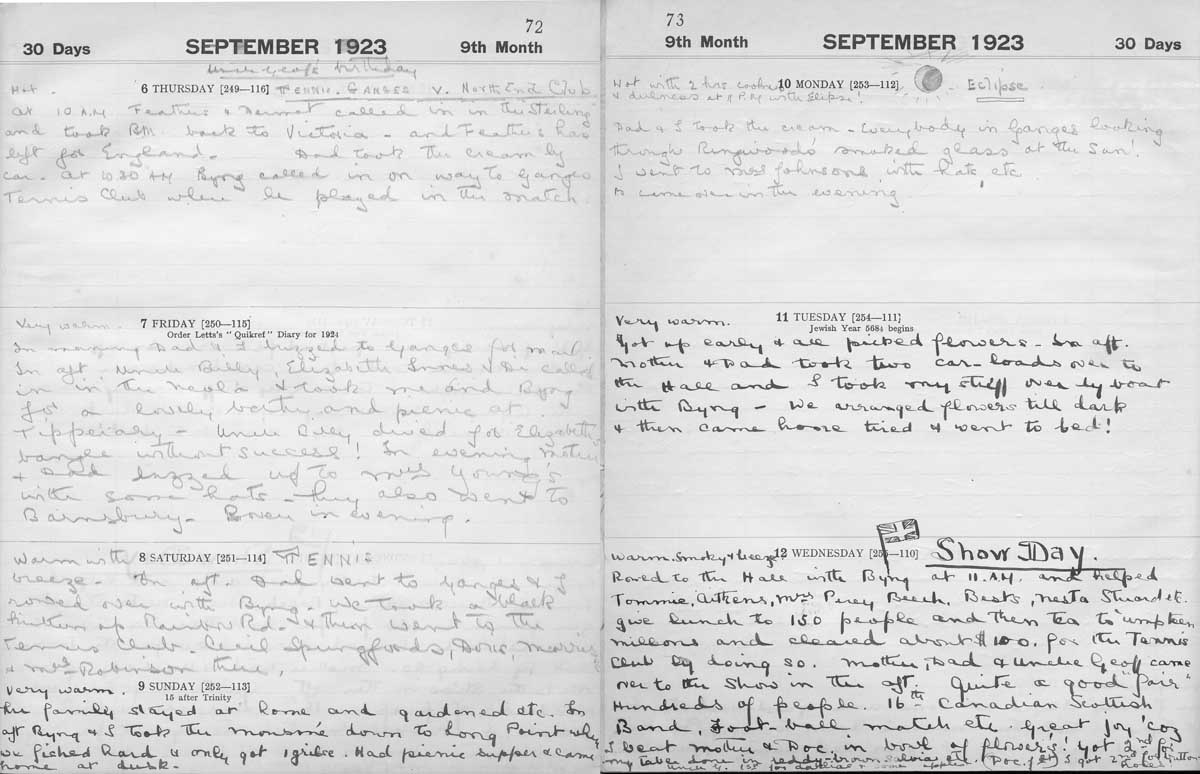 72
30 Days SEPTEMBER 1923 9th Month
Uncle Geoff's birthday
Hot. 6 THURSDAY [249—116] TENNIS. GANGES V. NORTH END CLUB
at 10 A.M. Feathers & Dermot called in in the "Sterling"
and took back to Victoria - and Feathers has
left for England. Dad took the cream by
car. at 10.30 AM Byng called in on way to Ganges
Tennis Club where he played in the match.
Very warm. 7 FRIDAY [250—115]
Order Letts's "Quikref" Diary for 1924
In morning Dad & I buzzed to Ganges for mail
In aft. Uncle Billy, Elizabeth & Di called
in in the & took me and Byng
for a lovely bathe and picnic at
Tipperary - Uncle Billy dived for Elizabeth's
bangle without success! In evening Mother
& Dad buzzed up to Mrs Young's
with some hats - they also went to
Barnsbury. in evening.
Warm with 8 SATURDAY [251—114] TENNIS
breeze. In aft. Dad went to Ganges & I
rowed over with Byng. We took a black
kitten up Rainbow Rd. & then went to the
Tennis Club. Cecil Springfords, Doris, Morris
& Mrs Robinson there.
Very warm. 9 SUNDAY [252—113]
15 after Trinity
The family stayed at home and gardened etc. In
aft Byng & I took the down to Long Point where
we fished hard & only got 1 grilse. Had picnic supper & came
home at dusk.
73
9th Month SEPTEMBER 1923 30 Days
Hot with 2 hrs 10 MONDAY [253—112] Eclipse
& dulness at 1 P.M. with Elipse!
Dad & I took the cream - Everybody in Ganges looking
through Ringwood's smoked glass at the Sun!
I went to Mrs Johnsons with hats, etc
B came over in the evening.
Very warm. 11 TUESDAY [254—111]
Jewish Year 5684 begins
Got up early & all picked flowers - In aft.
Mother & Dad took two car-loads over to
the Hall and I took my stuff over by boat
with Byng - We arranged flowers till dark
& then came home tired & went to bed!
Warm. Smoky & breeze 12 WEDNESDAY [255—110] Show Day.
Rowed to the Hall with Byng at 11. A.M. and helped
Tommie, Aitkens, Mrs Percy Beech, Bests, Nesta Stuard etc.
give lunch to 150 people and then tea to umpteen
millions and cleared about $100. for the Tennis
Club by doing so. Mother, Dad & Uncle Geoff came
over to the Show in the aft. Quite a good "fair"
Hundreds of people. 16th Canadian Scottish
Band, Foot-ball match etc. Great joy 'coz
I beat Mother & Doc. in bowl of flowers! Got 2nd for
my table done in reddy-brown salvia etc. (Doc. 1st) I got 2nd for
Uncle G. 1st for dahlias & some apples